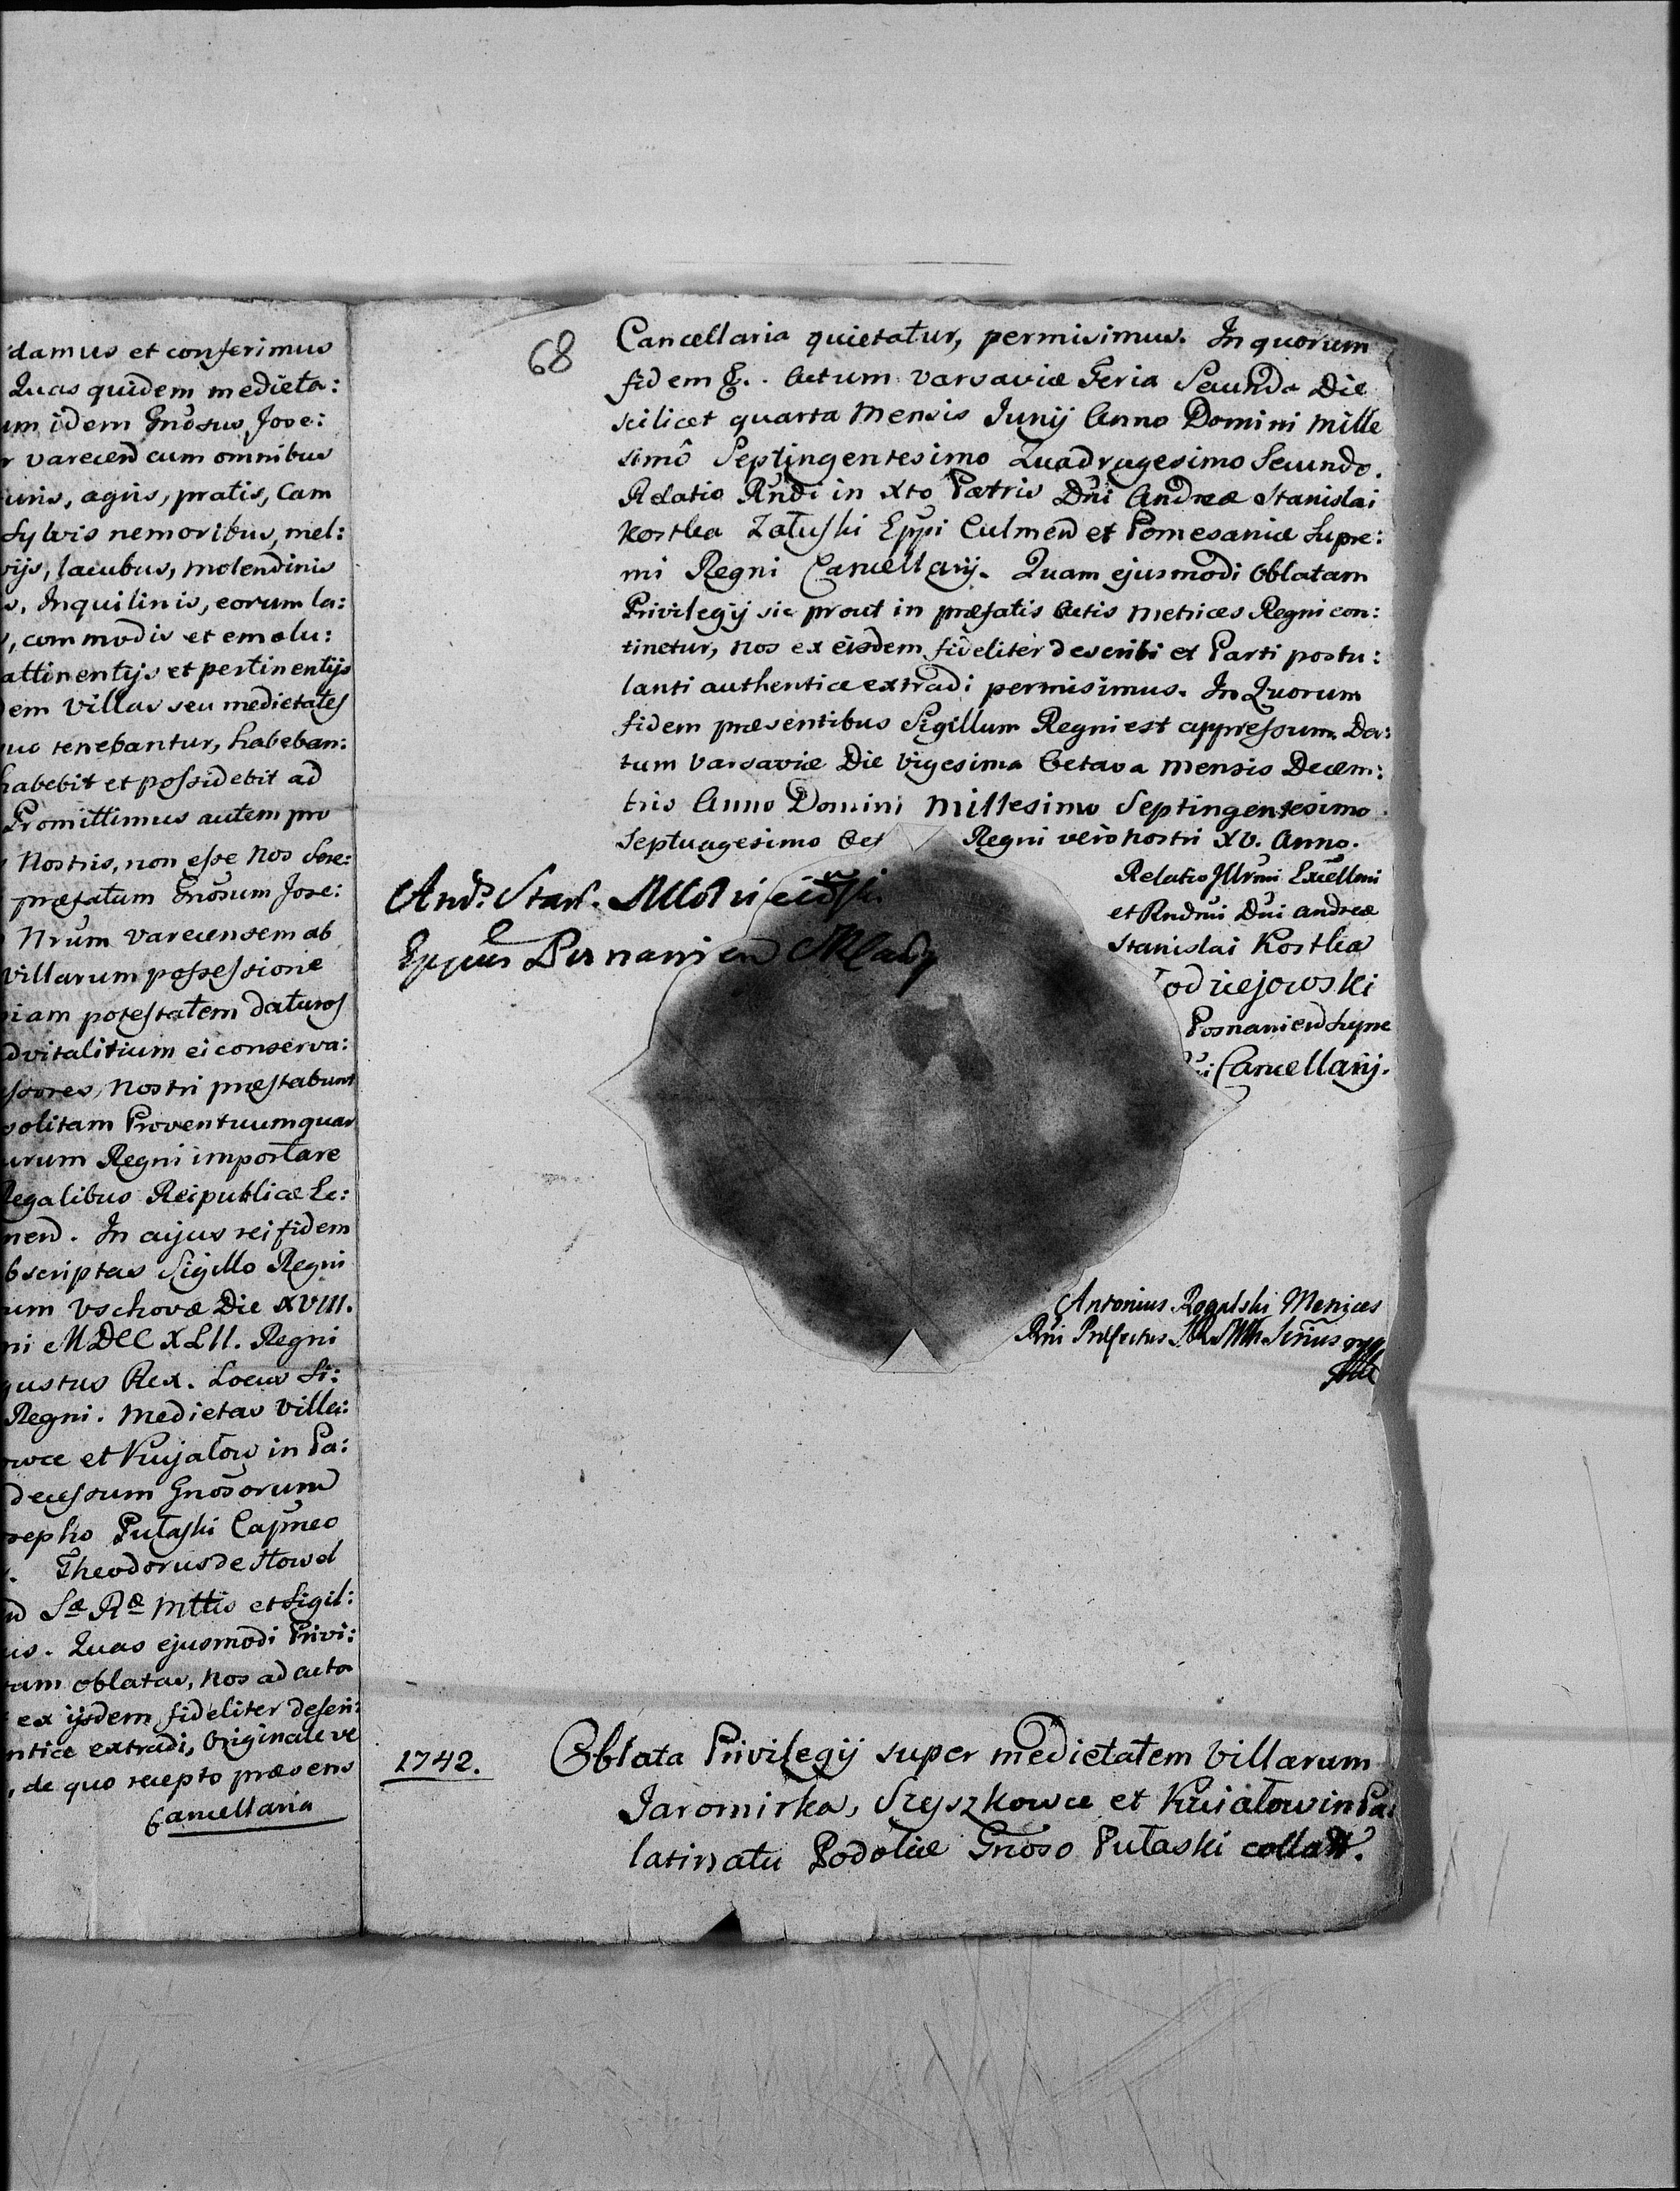 damus et conferimus
Quas quidem medieta:
um idem Gnosus Jose:
r varecen cum omnibus
uris, agris, pratis, Cam
Sylvis nemoribus, mel:
vijs, lacubus, molendinis
s, Inquilinis, eorum la:
, commodis et emolu:
attinentijs et pertinentijs
dem Villas seu medietates
quo tenebantur, habeban:
habebit et possidebit ad
Promittimus autem pro
Nostris, non esse Nos Sere:
præfatum Gnosum Jose:
Nrum varecensem ab
Villarum possessione
niam potestatem daturos
advitalitium ei conserva:
ssores, Nostri præstabunt
solitam Proventuum quar
urum Regni importare
Regalibus Reipublicæ Le:
nen. In cujus rei fidem
bscriptas Sigillo Regni
um Vschovæ Die XVIII.
ni MDCCXLII. Regni
gustus Rex. Locus Si:
Regni. Medietas Villa:
owce et Kujatow in Pa:
decessum Gnosorum
osepho Pułaski Capneo
. Theodorus de Stowol
Sæ Ræ Mttis et Sigil:
us. Quas ejusmodi Privi:
tam oblatas, Nos ad acta
ex ijsdem fideliter descri:
ntice extradi, Originale ve
, de quo recepto præsens
Cancellaria
68
Cancellaria quietatur, permisimus. In quorum
fidem &. Actum Varsaviæ Feria Secunda Die
scilicet quarta Mensis Junij Anno Domini Mille
simô Septingentesimo Quadragesimo Secundo.
Relatio Rndi in Xto Patris Dni Andreæ Stanislai
Kostka Załuski Eppi Culmen et Pomesaniæ Supre:
mi Regni Cancellarij. Quam ejusmodi Oblatam
Privilegij sic prout in præfatis Actis Metrices Regni con:
tinetur, Nos ex eisdem fideliter describi et Parti postu:
lanti authentice extradi permisimus. In Quorum
fidem præsentibus Sigillum Regni est appressum. Da:
tum Varsaviæ Die Vigesima Octava Mensis Decem:
bris Anno Domini Millesimo Septingentesimo
Septuagesimo Oct Regni vero Nostri XV. Anno.
Relatio Illrmi Excellmi
et Rndmi Dni Andreæ
Stanislai Kostka
odziejowski
Posnanien Supre
Cancellarij.
And. Stan.
Eppus Posnanien
Antonius Rogalski Metrices
Rni Præfectus
1742.
Oblata Privilegij super medietatem Villarum
Jaromirka, Szyszkowce et Kuiatow in Pa:
latinatu Podoliæ Gnoso Pułaski collatt.